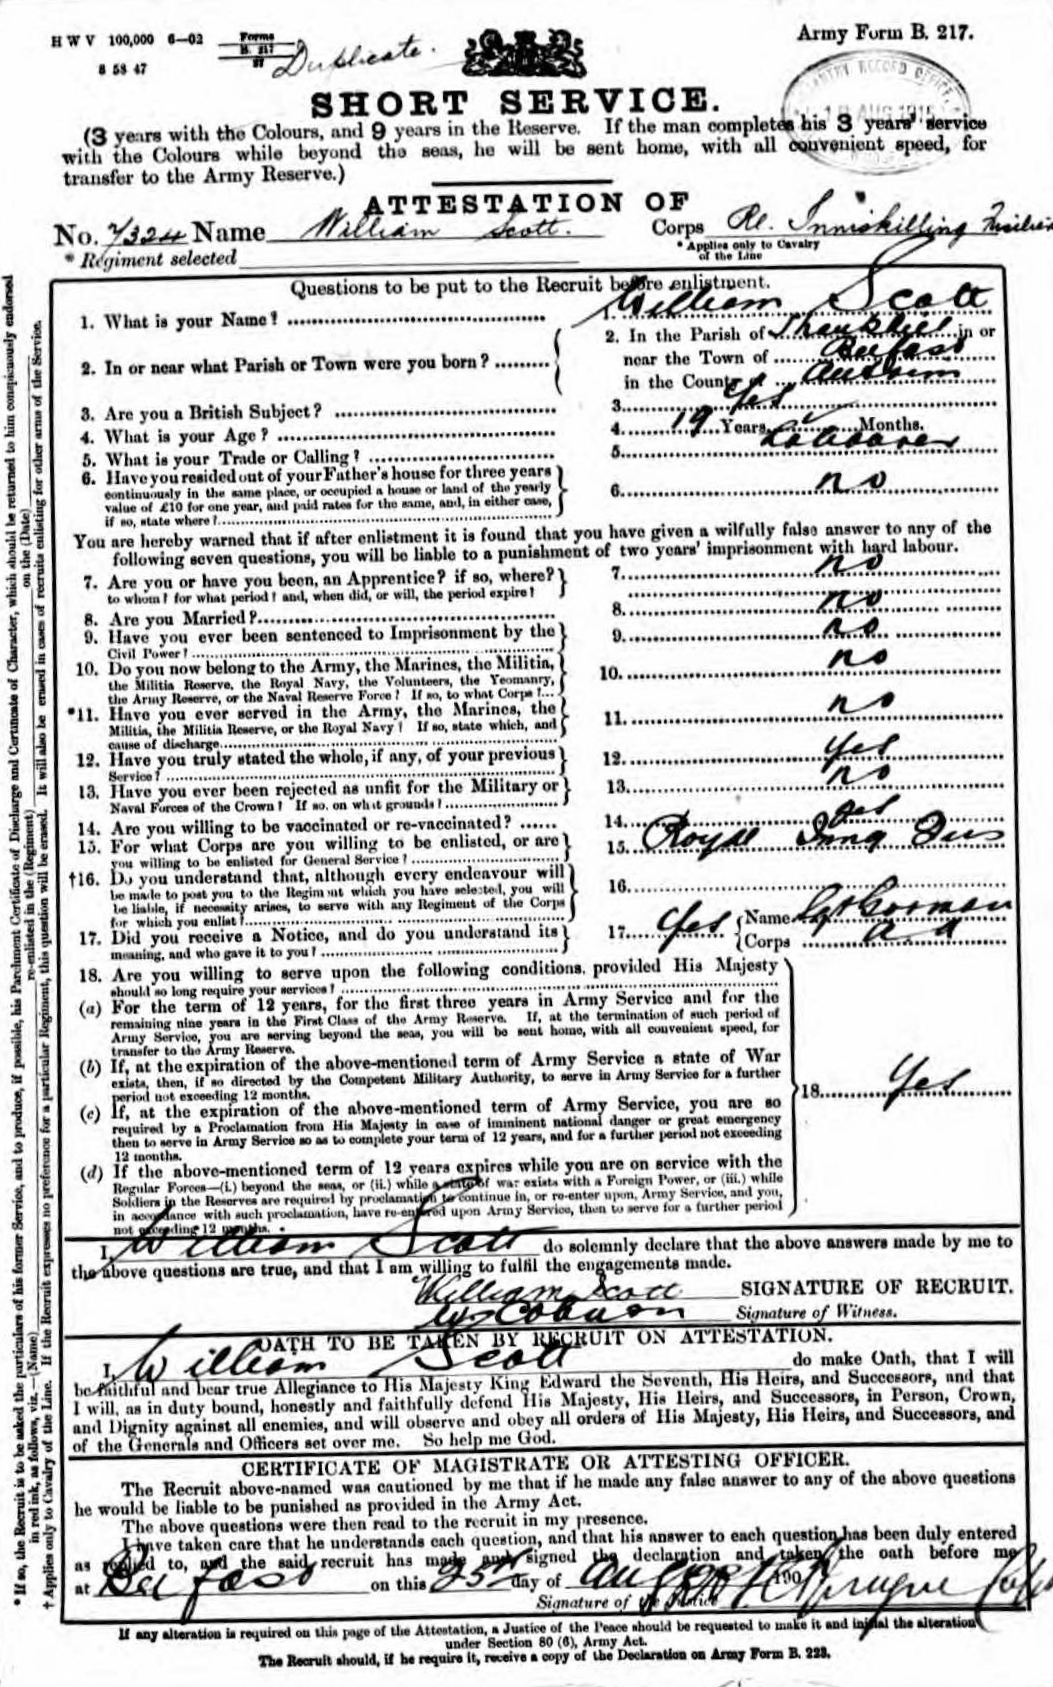 H W V 100,000 6—02 Forms B. 217 Duplicate. Army Form B. 217.
8 58 47
SHORT SERVICE.
(3 years with the Colours, and 9 years in the Reserve. If the man completes his 3 years' service
with the Colours while beyond the seas, he will be sent home, with all convenient speed, for
transfer to the Army Reserve.)
ATTESTATION OF
No. 7324 Name William Scott. Corps Rl. Inniskilling Fusiliers
* Applies only to Cavalry of the Line
* Regiment selected
Questions to be put to the Recruit before enlistment.
1. What is your Name? 1. William Scott
2. In or near what Parish or Town were you born? 2. In the Parish of Shankhill in or
near the Town of Belfast
in the County of Antrim
3. Are you a British Subject? 3. Yes
4. What is your Age? 4. 19 Years Months.
5. What is your Trade or Calling? 5. Labourer
6. Have you resided out of your Father's house for three years
continuously in the same place, or occupied a house or land of the yearly
value of £10 for one year, and paid rates for the same, and, in either case,
if so, state where? 6. no
You are hereby warned that if after enlistment it is found that you have given a wilfully false answer to any of the
following seven questions, you will be liable to a punishment of two years' imprisonment with hard labour.
7. Are you or have you been, an Apprentice? if so, where? 7. no
to whom? for what period? and, when did, or will, the period expire?
8. Are you Married? 8. no
9. Have you ever been sentenced to Imprisonment by the 9. no
Civil Power?
10. Do you now belong to the Army, the Marines, the Militia, 10. no
the Militia Reserve, the Royal Navy, the Volunteers, the Yeomanry,
the Army Reserve, or the Naval Reserve Force? If so, to what Corps?
*11. Have you ever served in the Army, the Marines, the 11. no
Militia, the Militia Reserve, or the Royal Navy? If so, state which, and
cause of discharge
12. Have you truly stated the whole, if any, of your previous 12. Yes
Service?
13. Have you ever been rejected as unfit for the Military or 13. no
Naval Forces of the Crown? If so, on what grounds?
14. Are you willing to be vaccinated or re-vaccinated? 14. Yes
15. For what Corps are you willing to be enlisted, or are 15. Royal Innq Fus
you willing to be enlisted for General Service?
†16. Do you understand that, although every endeavour will 16.
be made to post you to the Regiment which you have selected, you will
be liable, if necessity arises, to serve with any Regiment of the Corps
for which you enlist?
17. Did you receive a Notice, and do you understand its 17. Yes Name Gorman
meaning, and who gave it to you? Corps
18. Are you willing to serve upon the following conditions, provided His Majesty
should so long require your services?
(a) For the term of 12 years, for the first three years in Army Service and for the
remaining nine years in the First Class of the Army Reserve. If, at the termination of such period of
Army Service, you are serving beyond the seas, you will be sent home, with all convenient speed, for
transfer to the Army Reserve.
(b) If, at the expiration of the above-mentioned term of Army Service a state of War
exists, then, if so directed by the Competent Military Authority, to serve in Army Service for a further
period not exceeding 12 months.
18. Yes
(c) If, at the expiration of the above-mentioned term of Army Service, you are so
required by a Proclamation from His Majesty in case of imminent national danger or great emergency
then to serve in Army Service so as to complete your term of 12 years, and for a further period not exceeding
12 months.
(d) If the above-mentioned term of 12 years expires while you are on service with the
Regular Forces—(i.) beyond the seas, or (ii.) while a state of war exists with a Foreign Power, or (iii.) while
Soldiers in the Reserves are required by proclamation to continue in, or re-enter upon, Army Service, and you,
in accordance with such proclamation, have re-entered upon Army Service, then to serve for a further period
not exceeding 12 months.
I, William Scott do solemnly declare that the above answers made by me to
the above questions are true, and that I am willing to fulfil the engagements made.
William Scott SIGNATURE OF RECRUIT.
Coburn Signature of Witness.
OATH TO BE TAKEN BY RECRUIT ON ATTESTATION.
I, William Scott do make Oath, that I will
be faithful and bear true Allegiance to His Majesty King Edward the Seventh, His Heirs, and Successors, and that
I will, as in duty bound, honestly and faithfully defend His Majesty, His Heirs, and Successors, in Person, Crown,
and Dignity against all enemies, and will observe and obey all orders of His Majesty, His Heirs, and Successors, and
of the Generals and Officers set over me. So help me God.
CERTIFICATE OF MAGISTRATE OR ATTESTING OFFICER.
The Recruit above-named was cautioned by me that if he made any false answer to any of the above questions
he would be liable to be punished as provided in the Army Act.
The above questions were then read to the recruit in my presence.
I have taken care that he understands each question, and that his answer to each question has been duly entered
as replied to, and the said recruit has made and signed the declaration and taken the oath before me
at Belfast on this 25 day of August 190
Signature of the Justice
If any alteration is required on this page of the Attestation, a Justice of the Peace should be requested to make it and initial the alteration
under Section 80 (6), Army Act.
The Recruit should, if he require it, receive a copy of the Declaration on Army Form B. 223.
* If so, the Recruit is to be asked the particulars of his former Service, and to produce, if possible, his Parchment Certificate of Discharge and Certificate of Character, which should be returned to him conspicuously endorsed
in red ink, as follows, viz.—(Name) re-enlisted in the (Regiment) on the (Date)
† Applies only to Cavalry of the Line. If the Recruit expresses no preference for a particular Regiment, this question will be erased. It will also be erased in cases of recruits enlisting for other arms of the Service.